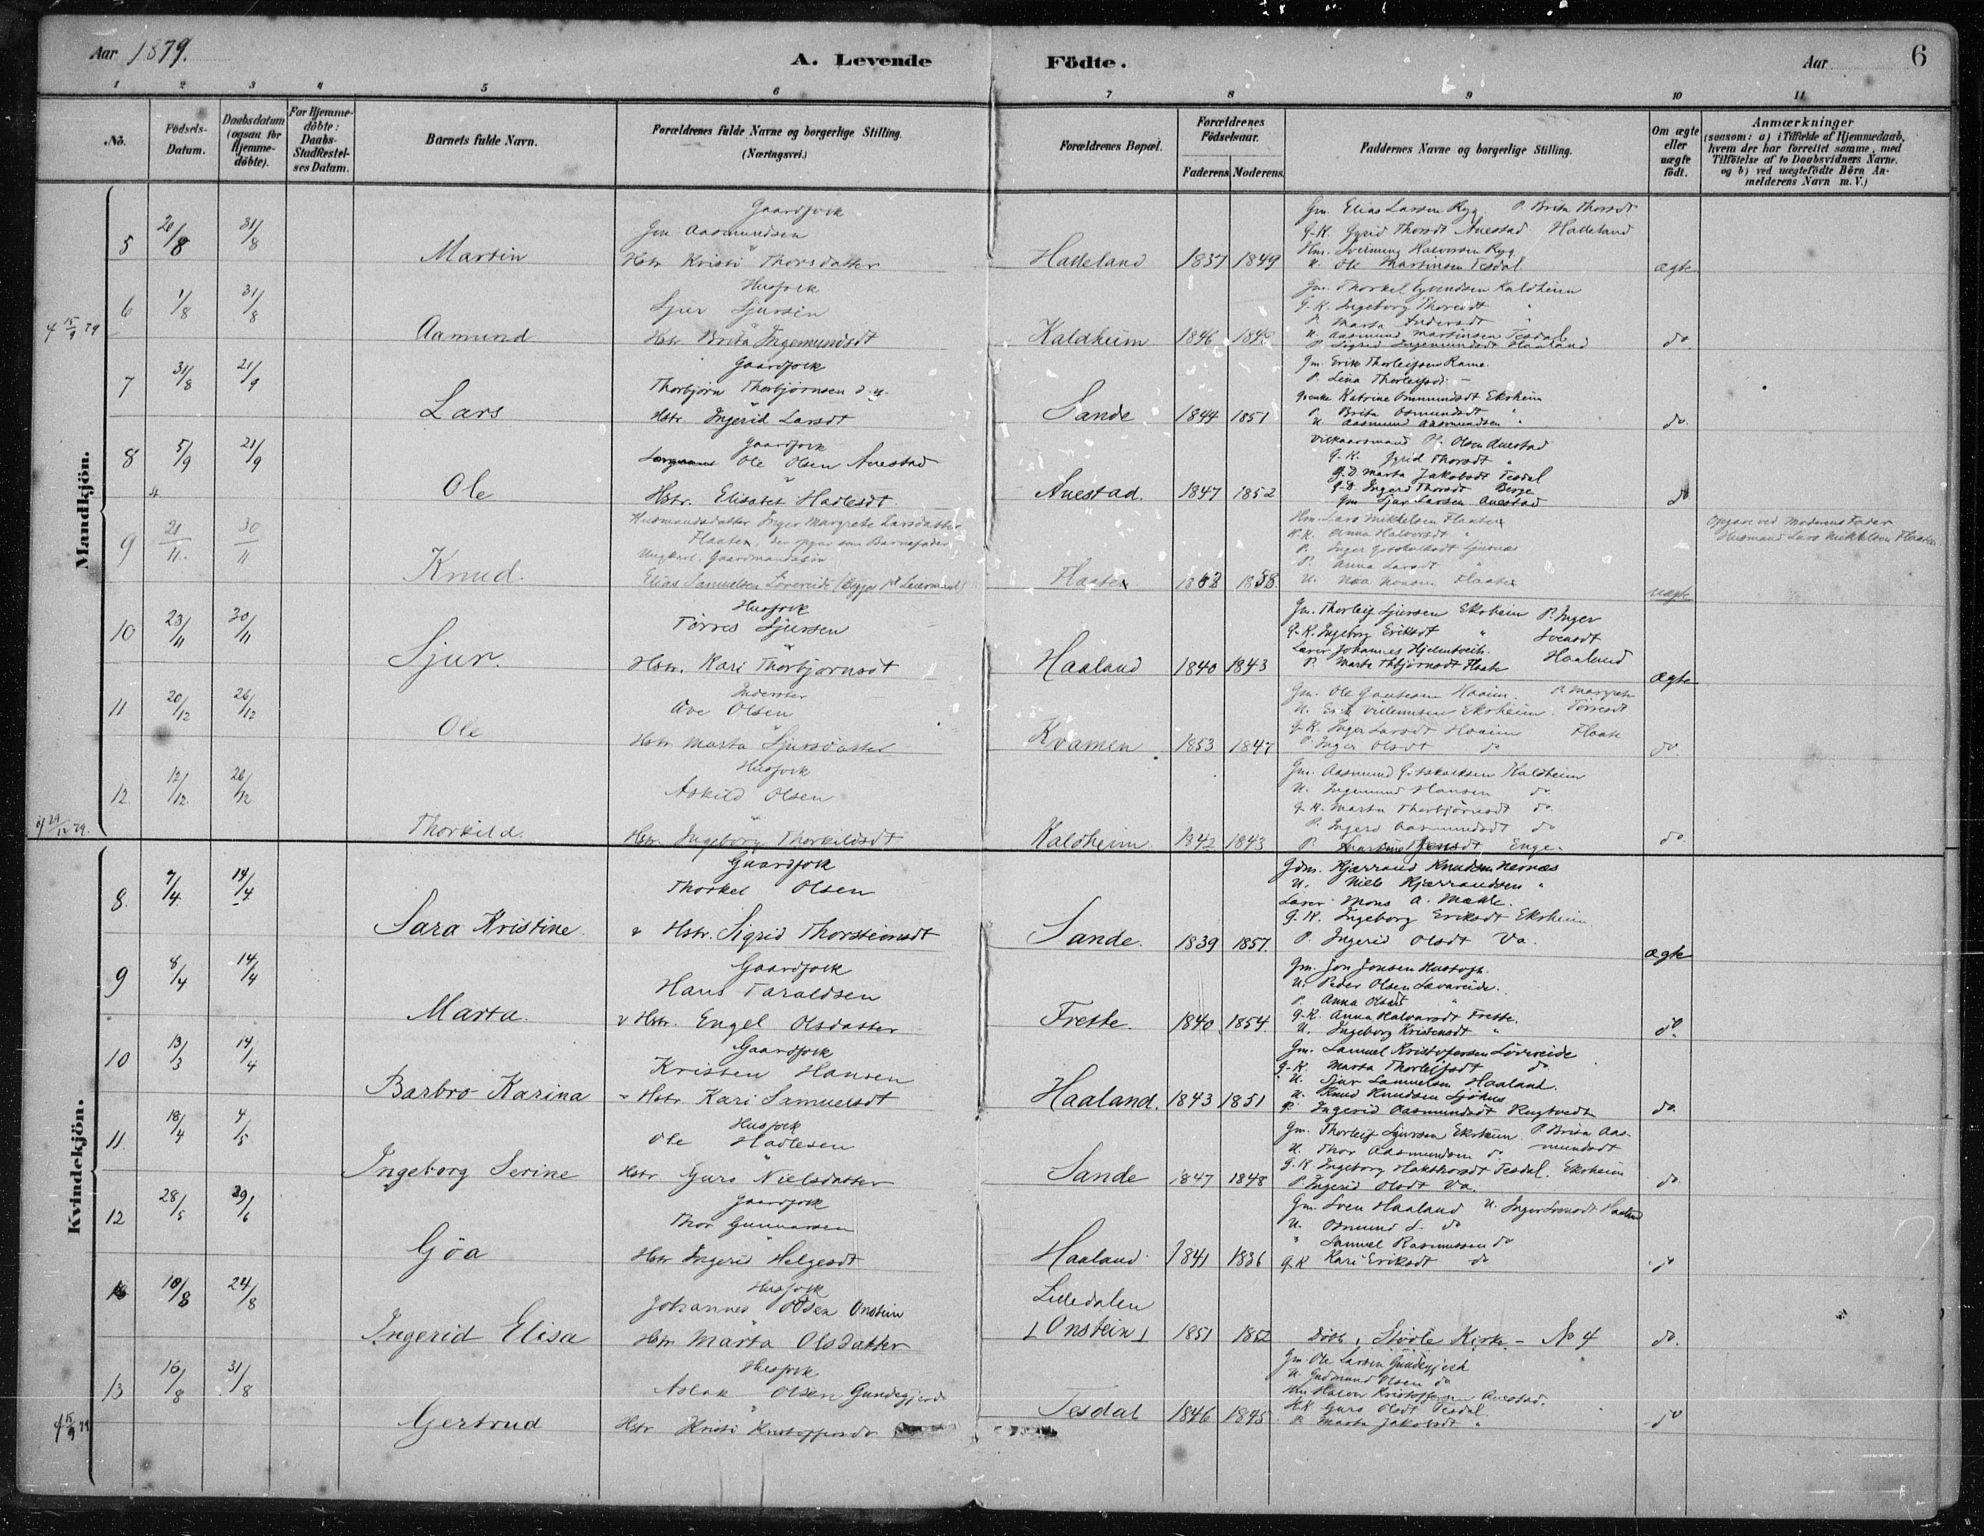 Aar 1879.
A. Levende Födte.
Aar
6
1 2 3 4 5 6 7 8 9 10 11
No.
Födsels-Datum.
Daabsdatum (ogsaa for Hjemme-döbte).
For Hjemme-döbte: Daabs-Stadfæstelses Datum.
Barnets fulde Navn.
Forældrenes fulde Navne og borgerlige Stilling. (Næringsvei.)
Forældrenes Bopæl.
Forældrenes Födselsaar.
Faderens. Moderens.
Faddernes Navne og borgerlige Stilling.
Om ægte eller uægte födt.
Anmærkninger (saasom: a) i Tilfælde af Hjemmedaab, hvem der har forrettet samme, med Tilføielse af to Daabsvidners Navne, og b) ved uægtefödte Börn Anmelderens Navn m. V.)
Mandkjön.
5 20/8 31/8 Martin
Gaardfolk
Gm Aasmundsen
Hstr Kristi Thorsdatter
Halleland 1837 1849
Gm. Elias Larsen Ryg. P. Brita Thorsdt
G-K. Gyrid Thorsdt Auestad Halleland
Hm. Sveinung Halvorsen Ryg.
U. Ole Martinsen Tesdal
ægte
6 1/8 31/8 Aamund
Husfolk
Sjur Sjursen
Hstr. Brita Ingemundsdt
Kaldheim 1846 1848
Gm. Thorkel Eyvindsen Kaldheim
G.K. Ingeborg Thoresdt "
P. Marta Andersdt "
U. Aasmund Martinsen Tesdal
P. Sigrid Ingemundsdt Haaland
do.
15/9 79
7 31/8 21/9 Lars
Gaardfolk
Thorbjørn Thorbjørnsen d.y.
Hstr Ingerid Larsdt
Sande 1844 1851
Gm. Erik Thorleifsen Rame
P. Lina Thorleifsd. –
Genke Katrine Ommundsdt Eksheim
P. Brita Osmundsdt "
U. Aasmund Aasmundsen "
do.
8 5/9 21/9 Ole
Gaardfolk
Ole Olsen Auestad
Hstr. Elisabet Hadlesdt.
Auestad. 1847 1852
Vilkaarsmand Ole Olsen Auestad
G.K. Gyrid Thorsdt "
G.D. Marta Jakobsdt Tesdal
G-D. Ingerd Thorsdt Berge
Gm Sjur Larsen Auestad
do
9 21/11. 30/11 Knud.
Husmandsdatter Inger Margrete Larsdatter
Flaaten, der opgav som Barnefader
Ungkarl. Gaardmandssøn
Elias Samuelsen Løvereide (Begges 1st Leiermaal)
Flaaten 1858.
Hm. Lars Mikkelsen Flaaten
P.K. Anna Halvorsdt "
P. Anna Larsdt
U. Flaaten
uægte
Opgav ved Moderens Fader
Husmand Lars Mikkelsen Flaaten
10 23/11 30/11 Sjur.
Husfolk
Tørres Sjursen
Hstr. Kari Thorbjørnsdt
Haaland 1840 1843
Gm. Thorleif Sjursen Eksheim P. Inger
G-K. Ingeborg Eriksdt " Svensdt
Lærer Johannes Hjelmtveit. Haaland
P. Marta Thbjørnsdt Flaate
ægte
11 20/12 26/12 Ole
Inderster
Ove Olsen
Hstr Marta Sjursdatter
Kvamen 1853 1847
Gm. Ole Gautesen Haaim. P. Margrete
U. Erik Villumsen Eksheim. Torresdt
G-K. Inger Larsdt Haaim Flaate
P. Inger Olsdt do
do.
12. 12/12. 26/12 Thorkild.
Husfolk
Askild Olsen
Hstr. Ingeborg Thorkildsdt
Kaldheim 1842 1843
Gm. Aasmund Gotskalksen Kaldheim
U. Ingemund Hansen do
G-K. Marta Thorbjørnsdt do.
P. Ingerd Aasmundsdt do
P. Enge.
do.
29/12 79.
Kvindekjön.
8. 7/4 14/4 Sara Kristine.
Gaardfolk
Thorkel Olsen
Hstr. Sigrid Thorsteinsdt
Sande. 1839 1857.
Gdm. Kjærrand Knudsen Nernæs
U. Niels Kjærrandsen "
Lærer Mons A. Mæhle.
G.K. Ingeborg Eriksdt Eksheim
P. Ingerid Olsdt Va.
ægte
9 8/4 14/4 Marta.
Gaardfolk
Hans Taraldsen
Hstr. Engel Olsdatter
Frette. 1840 1854.
Gm. Jon Jonsen Hustoft.
U. Peder Olsen Løvareide.
P. Anna Olsdt "
G-K. Anna Halvorsdt Frette.
U. Ingeborg Kristensdt "
do.
10 13/3 14/4 Barbro Karina
Gaardfolk
Kristen Hansen
Hstr. Kari Samuelsdt
Haaland. 1843 1851
Gm. Samuel Kristofersen Løvereide
G-K. Marta Thorleifsdt do.
U. Sjur Samuelsen Haaland.
U. Knud Knudsen Sjøhus
P. Ingerid Aasmundsdt Rugtvedt
do.
11. 18/4 4/5 Ingeborg Serine
Husfolk
Ole Hadlesen
Hstr Guro Nielsdatter
Sande 1847 1848
Gm. Thorleif Sjursen Eksheim P. Brita Aas-
U. Thor Aasmundsen do mundsdt
G.K. Ingeborg Tesdal. Eksheim
P. Ingerid Olsdt Va.
do.
12 28/5 29/6 Göa
Gaardfolk
Thor Gunnarsen
Hstr Ingerid Helgesdt
Haaland 1841 1836
Gm. Sven Haaland U. Inger Svensdt Haaland
U. Osmund S. do
" Samuel Rasmussen do
G.K Kari Eriksdt do
do
10/8 24/8 Ingerid Elisa
Husfolk
Johannes Olsen Onstein
Hstr Marta Olsdatter
Lilledalen
(Onstein) 1851 1852
Døbt i Støle Kirke – No 4
do.
13 16/8 31/8 Gertrud
Husfolk
Aslak Olsen Gundegjerde
Hstr Kristi Kristoffersdt
Tesdal 1846 1845
Gm. Ole Larsen Gundegjerd
U. Gudmund Olsen do
Hm Halvor Kristoffersen Auestad.
H.K. Guro Olsdt Tesdal.
P. Marta Jakobsdt "
do
15/9 79